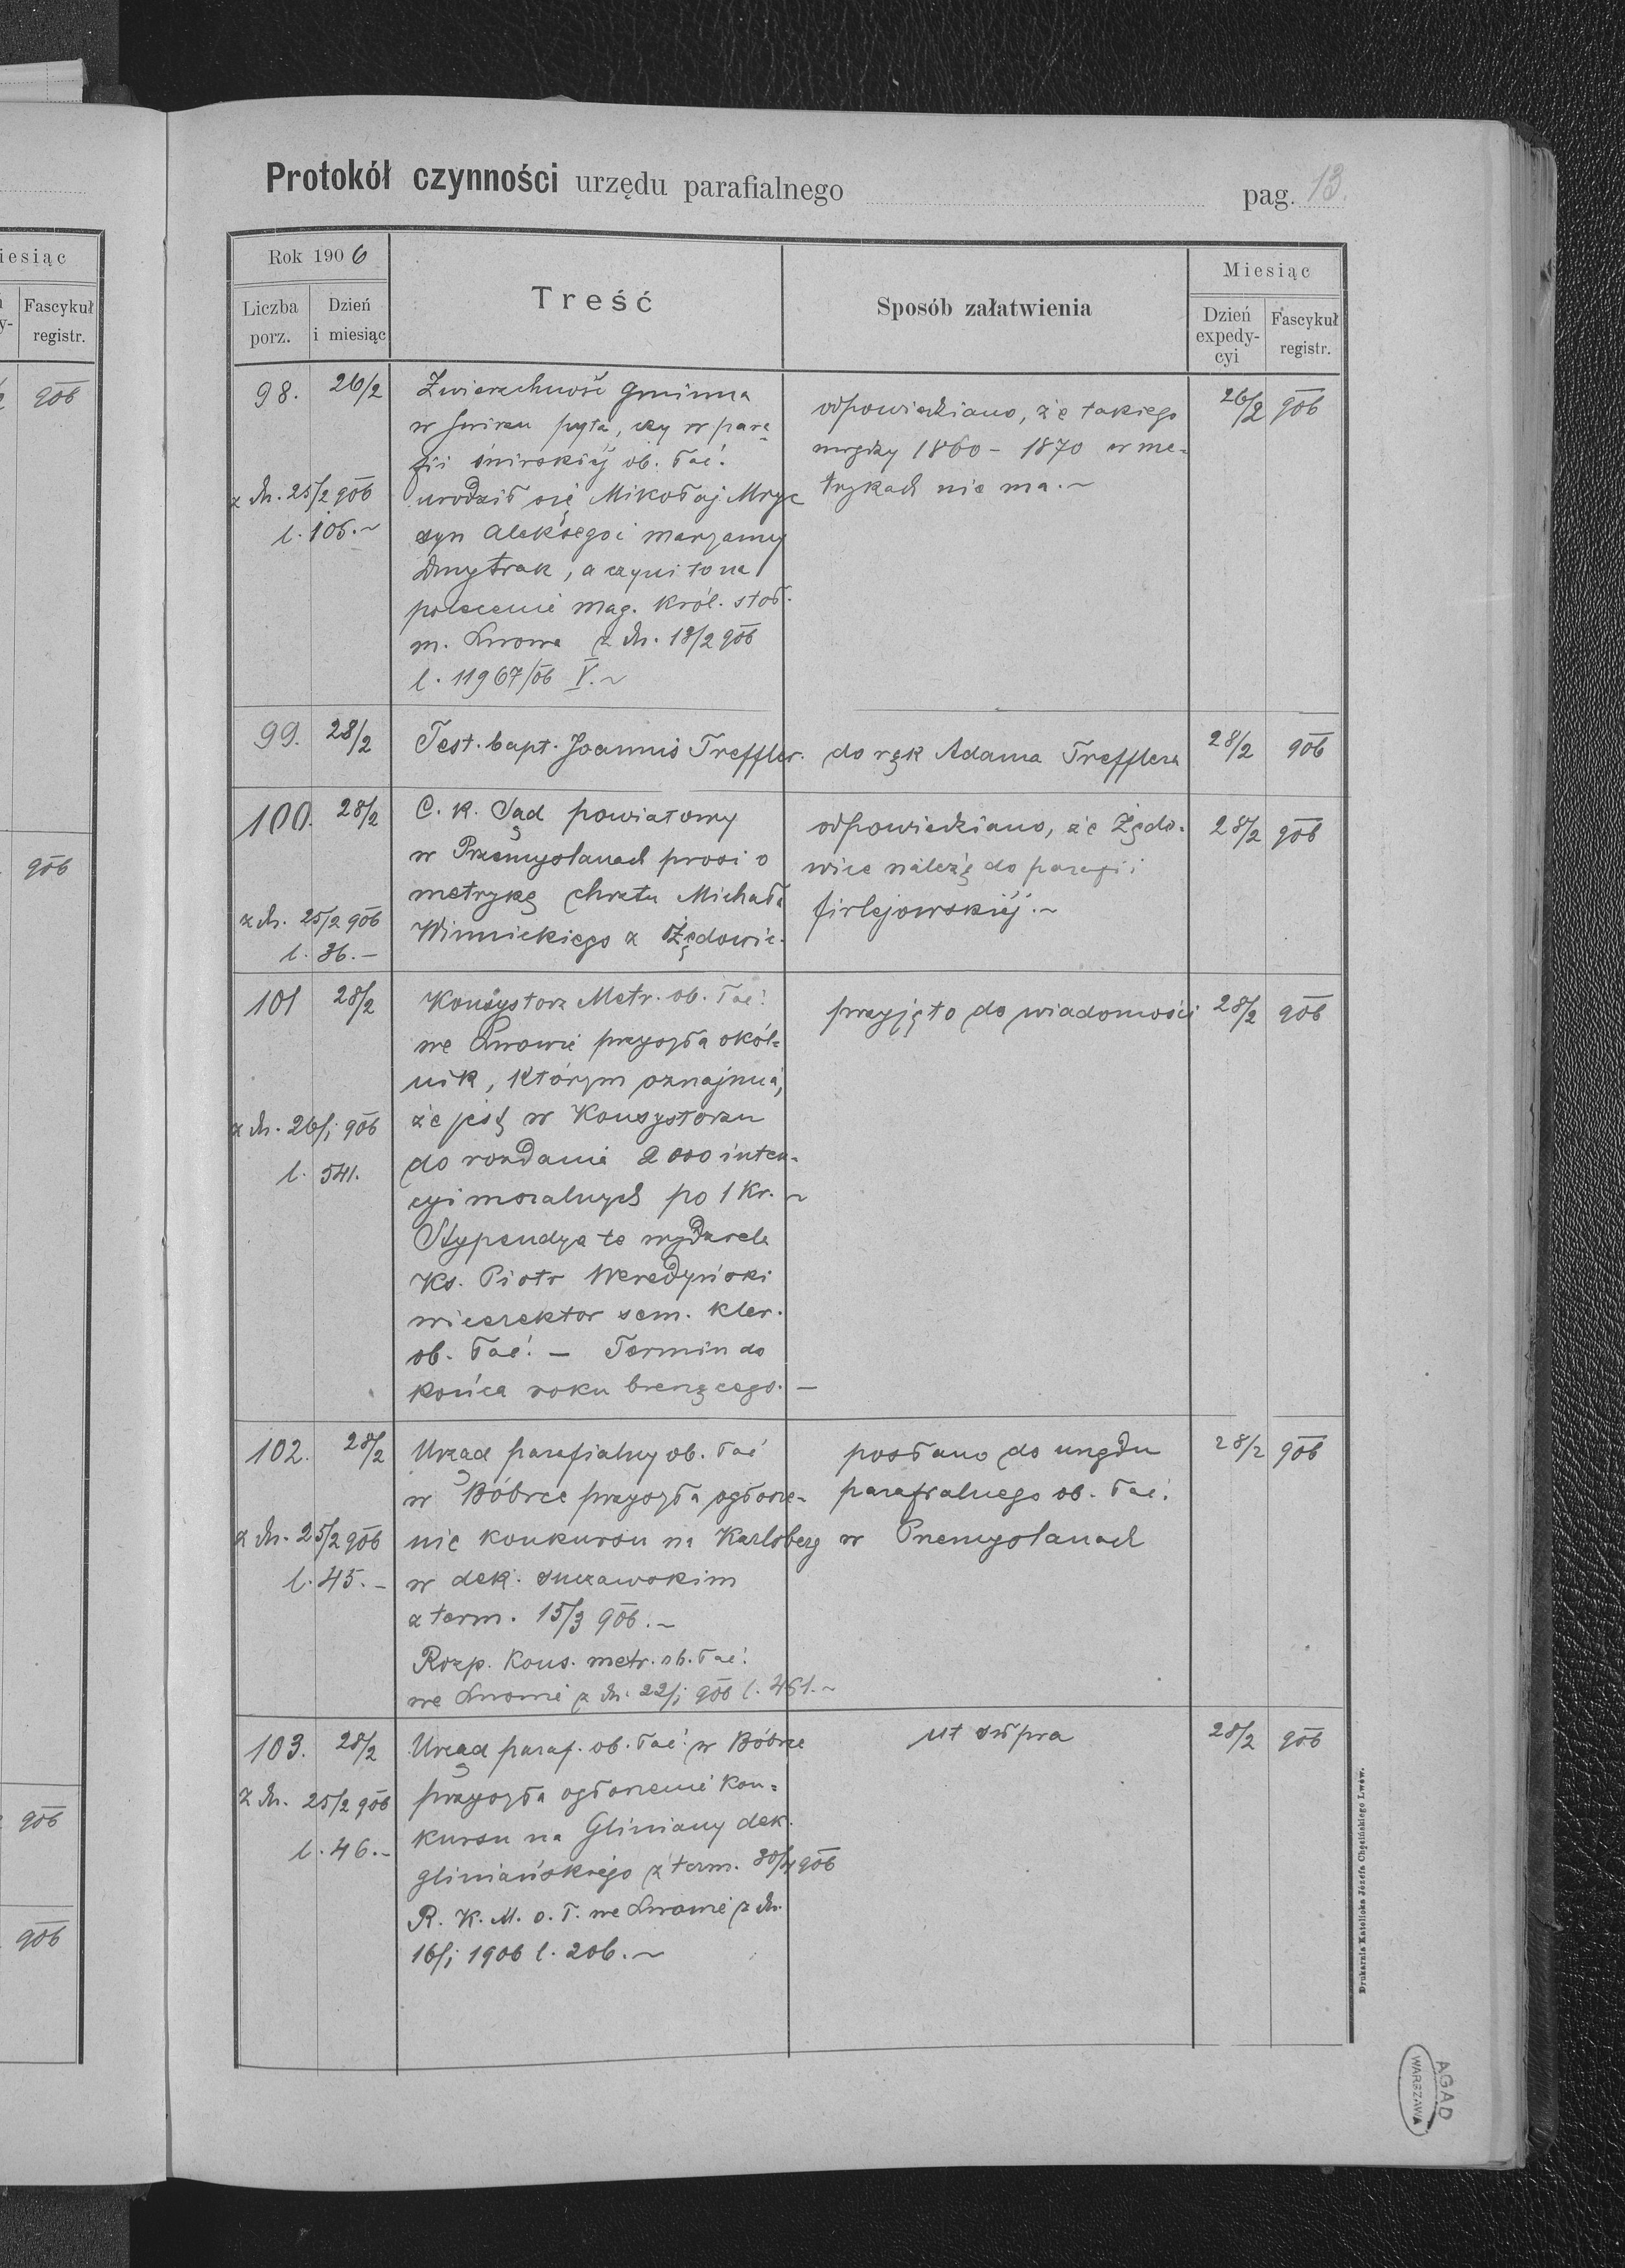 Protokół czynności urzędu parafialnego
pag. 13.
Rok 1906
Treść
Sposób załatwienia
Miesiąc
Liczba porz.
Dzień i miesiąc
Dzień expedycyi
Fascykuł registr.
98. 26/2
z dn. 25/2 906
l. 106.~
Zwierzchność gminna
w Świrzu pyta, czy w para
fii świrskiéj ob. łać.
urodził się Mikołaj Mryc
syn Aleksego i Maryanny
Dmytrak, a czyni to na
polecenie mag. król. stoł.
m. Lwowa z dn. 18/2 906
l. 11967/06 V.~
odpowiedziano, że takiego
między 1860 - 1870 w me-
trykach nie ma.~
26/2 906
99. 28/2
Test. bapt. Joannis Treffler.
do rąk Adama Trefflera
28/2 906
100. 28/2
z dn. 25/2 906
l. 36.-
C. k. Sąd powiatowy
w Przemyślanach prosi o
metrykę chrztu Michała
Winnickiego z Żędowic.
odpowiedziano, że Żędo-
wice należą do parafii
firlejowskiéj.~
28/2 906
101 28/2
z dn. 26/i 906
l. 541.
Konsystorz Metr. ob. łać.
we Lwowie przysyła okól-
nik, którym oznajmia,
że są w Konsystorzu
do rozdania 2000 inten-
cyi mszalnych po 1 kr. ~
Stypendya te wydziela
Ks. Piotr Weredyński
wicerektor sem. kler.
ob. łać. - Termin do
końca roku bieżącego. -
przyjęto do wiadomości
28/2 906
102. 28/2
z dn. 25/2 906
l. 45.-
Urząd parafialny ob. łać
w Bóbrce przysyła ogłosze-
nie konkursu na Karlsberg
w dek. suczawskim
z term. 15/3 906.-
Rozp. Kons. metr. ob. łać.
we Lwowie z dn. 22/i 906 l. 461.~
posłano do urzędu
parafialnego ob. łać.
w Przemyślanach
28/2 906
103. 28/2
z dn. 25/2 906
l. 46.-
Urząd paraf. ob. łać. w Bóbrce
przysyła ogłoszenie kon-
kursu na Gliniany dek.
gliniańskiego z term. 30/4 906
R. K. M. o. ł. we Lwowie z dn.
16/i 1906 l. 206.~
ut supra
28/2 906
Drukarnia Katolicka Józefa Chęcińskiego Lwów.
AGAD
WARSZAWA
iesiąc
Fascykuł
registr.
906
906
906
906